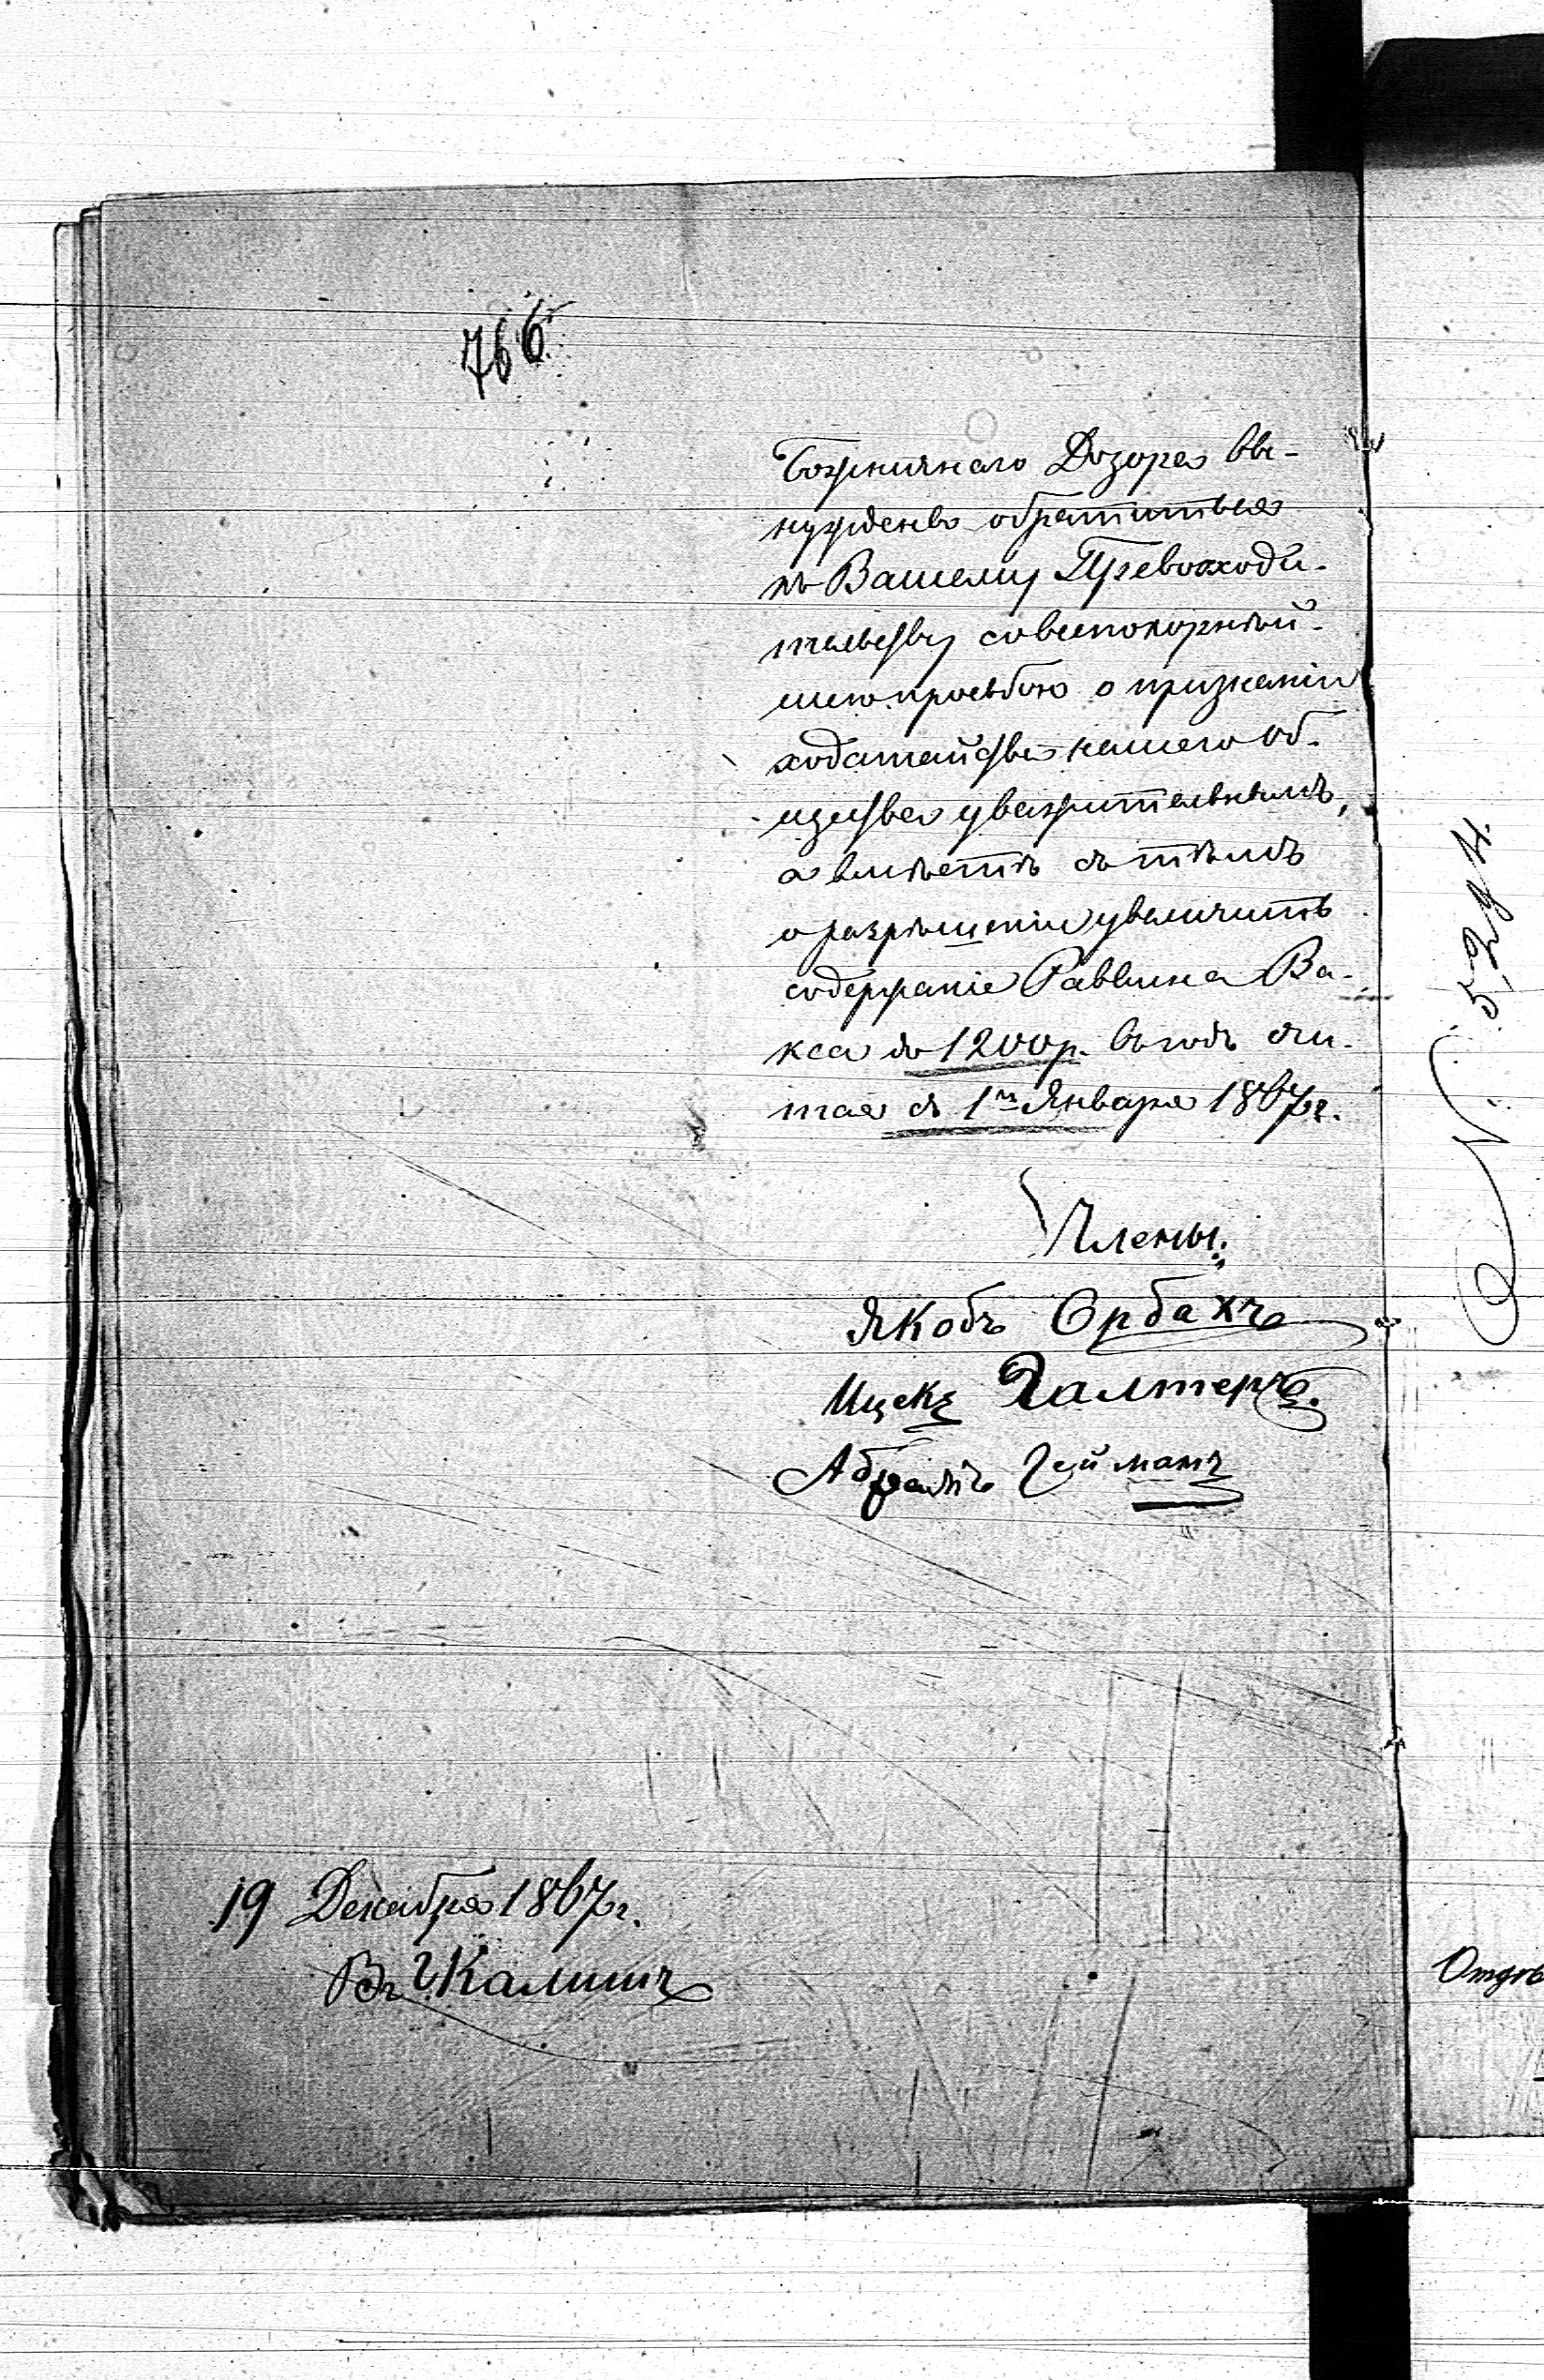 766
Божничнаго Дозора вы-
нужденъ обратиться
къ Вашему Превосходи-
тельству со всепокорнѣй-
шею просьбою о признаніи
ходатайства нашего об-
щества уважительнымъ,
а вмѣстѣ съ тѣмъ
о разрѣшеніи увеличить
содержаніе Раввина Ва-
кса до 1200 р. въ годъ счи-
тая съ 1го Января 1867 г.
Члены:
Якобъ Орбахъ
Ицекъ Галтеръ.
Абрамъ Гейманъ
19 Декабря 1867 г.
Въ г. Калишъ
N:
Отдѣ